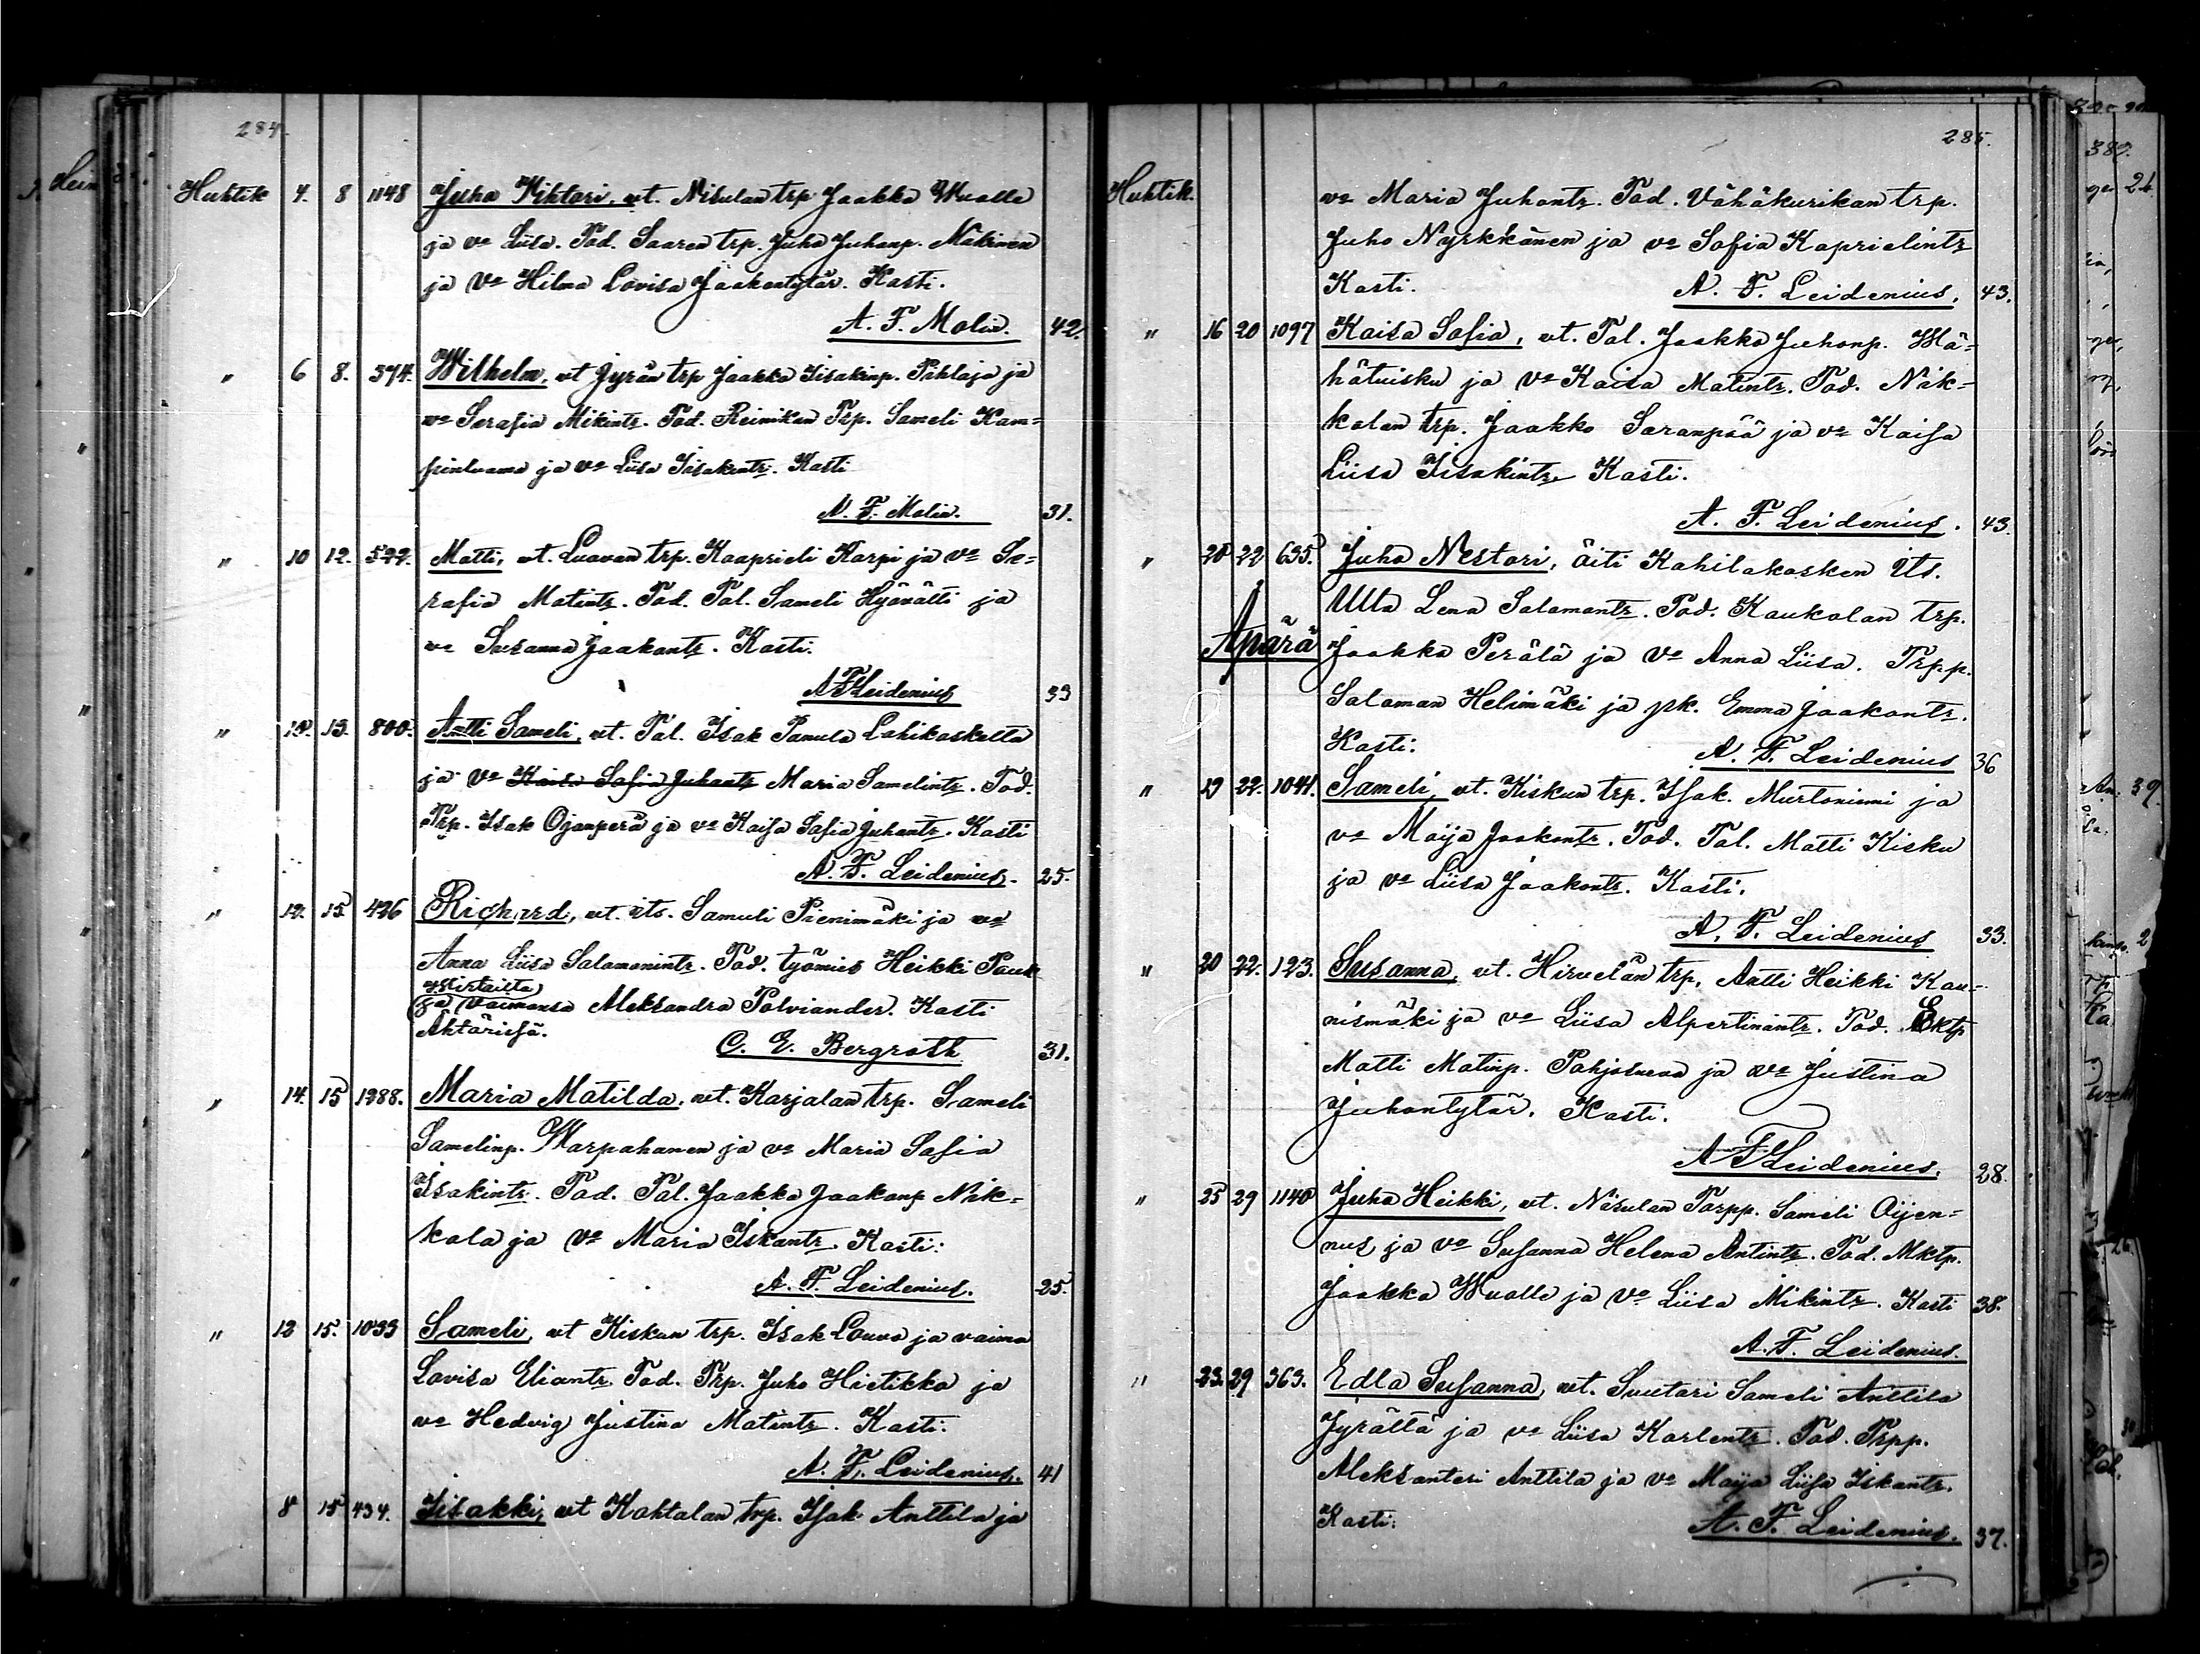 284.
Huhtik 4. 8 1148 Juho Wihtori, vt. Nisulan trp Jaakko Wualle
ja vo Liisa. Tod. Saaren trp. Juho Juhonp. Mäkinen
ja Vo Hilma Lovisa Jaakontytär. Kasti.
A. F. Molin. 42.
" 6 8. 374. Wilhelm, vt Jyrän trp Jaakko Iisakinp. Pihlaja ja
vo Serafia Mikintr. Tod. Reinikan Trp. Sameli Kam=
pinluoma ja vo Liisa Iisakintr. Kasti
A. F. Molin. 31.
" 10 12. 522. Matti, vt. Luovan trp. Kaaprieli Karpi ja vo Se=
rafia Matintr. Tod. Tal. Sameli Hyövälti ja
vo Susanna Jaakontr. Kasti.
A F Leidenius 33
" 12. 13. 800. Antti Sameli, vt. Tal. Isak Pamula Lahikoskelta
ja vo Kaisa Sofia Juhontr Maria Samelintr. Tod.
Trp. Isak Ojanperä ja vo Kaisa Sofia Juhontr. Kasti
A. F. Leidenius. 25.
" 12. 15. 426 Richard, vt. its. Samuli Pienimäki ja vo
Anna Liisa Salomonintr. Tod. työmies Heikki Pauk
Wirtailta
ja vaimonsa Aleksandra Palviander. Kasti
Ähtärissä.
C. E. Bergroth 31.
" 14. 15 1288. Maria Matilda, vt. Karjalan trp. Sameli
Samelinp. Warpahanen ja vo Maria Sofia
Isakintr. Tod. Tal. Jaakko Jaakonp Näk=
kola ja Vo Maria Iskantr. Kasti:
A. F. Leidenius. 25.
" 12 15. 1033 Sameli, vt Kiskun trp. Isak Louvo ja vaimo
Lovisa Eliantr. Tod. Trp. Juho Hietikko ja
vo Hedvig Justina Matintr. Kasti.
A. F. Leidenius. 41
8 15 434. Iisakki, vt Kohtalan trp. Isak Anttila ja
285.
Huhtik.
vo Maria Juhontr. Tod. Vähäkurikan trp.
Juho Nyrkkänen ja vo Sofia Kaprielintr
Kasti. A. F. Leidenius. 43.
" 16 20 1097 Kaisa Sofia, vt. Tal. Jaakko Juhonp. Mä=
hätuisku ja Vo Kaisa Matintr. Tod. Näk=
kolan trp. Jaakko Saranpää ja vo Kaisa
Liisa Iisakintr. Kasti.
A. F. Leidenius. 43
" 20 22 635. Juho Nestori, äiti Kahilakosken its.
Ulla Lena Salomontr. Tod. Kaukolan trp.
Äpärä Jaakko Perälä ja Vo Anna Liisa. Trp.p.
Saloman Helimäki ja pk. Emma Jaakontr.
Kasti: A. F. Leidenius 36
" 19 22. 1041. Sameli, vt. Kiskun trp. Isak. Murtoniemi ja
vo Maija Jaakontr. Tod. Tal. Matti Kisku
ja vo Liisa Jaakontr. Kasti.
A. F. Leidenius 33.
" 20 22. 123. Susanna, vt. Hirvelän trp. Antti Heikki Kau=
nismäki ja vo Liisa Alpertinantr. Tod. Lktp
Matti Matinp. Pohjoluoma ja vo Justina
Juhontytär. Kasti.
A F Leidenius. 28.
" 25 29 1140 Juho Heikki, vt. Nisulan Torpp. Sameli Oijen=
nus ja vo Susanna Helena Antintr. Tod. Mktp.
Jaakko Wualle ja Vo Liisa Mikintr. Kasti 38.
A. F. Leidenius.
" 23. 29 363. Edla Susanna, vt. Suutari Sameli Anttila
Jyrältä ja vo Liisa Karlentr. Tod. Trpp.
Aleksanteri Anttila ja vo Maija Liisa Iskantr.
Kasti: A. F. Leidenius. 37.